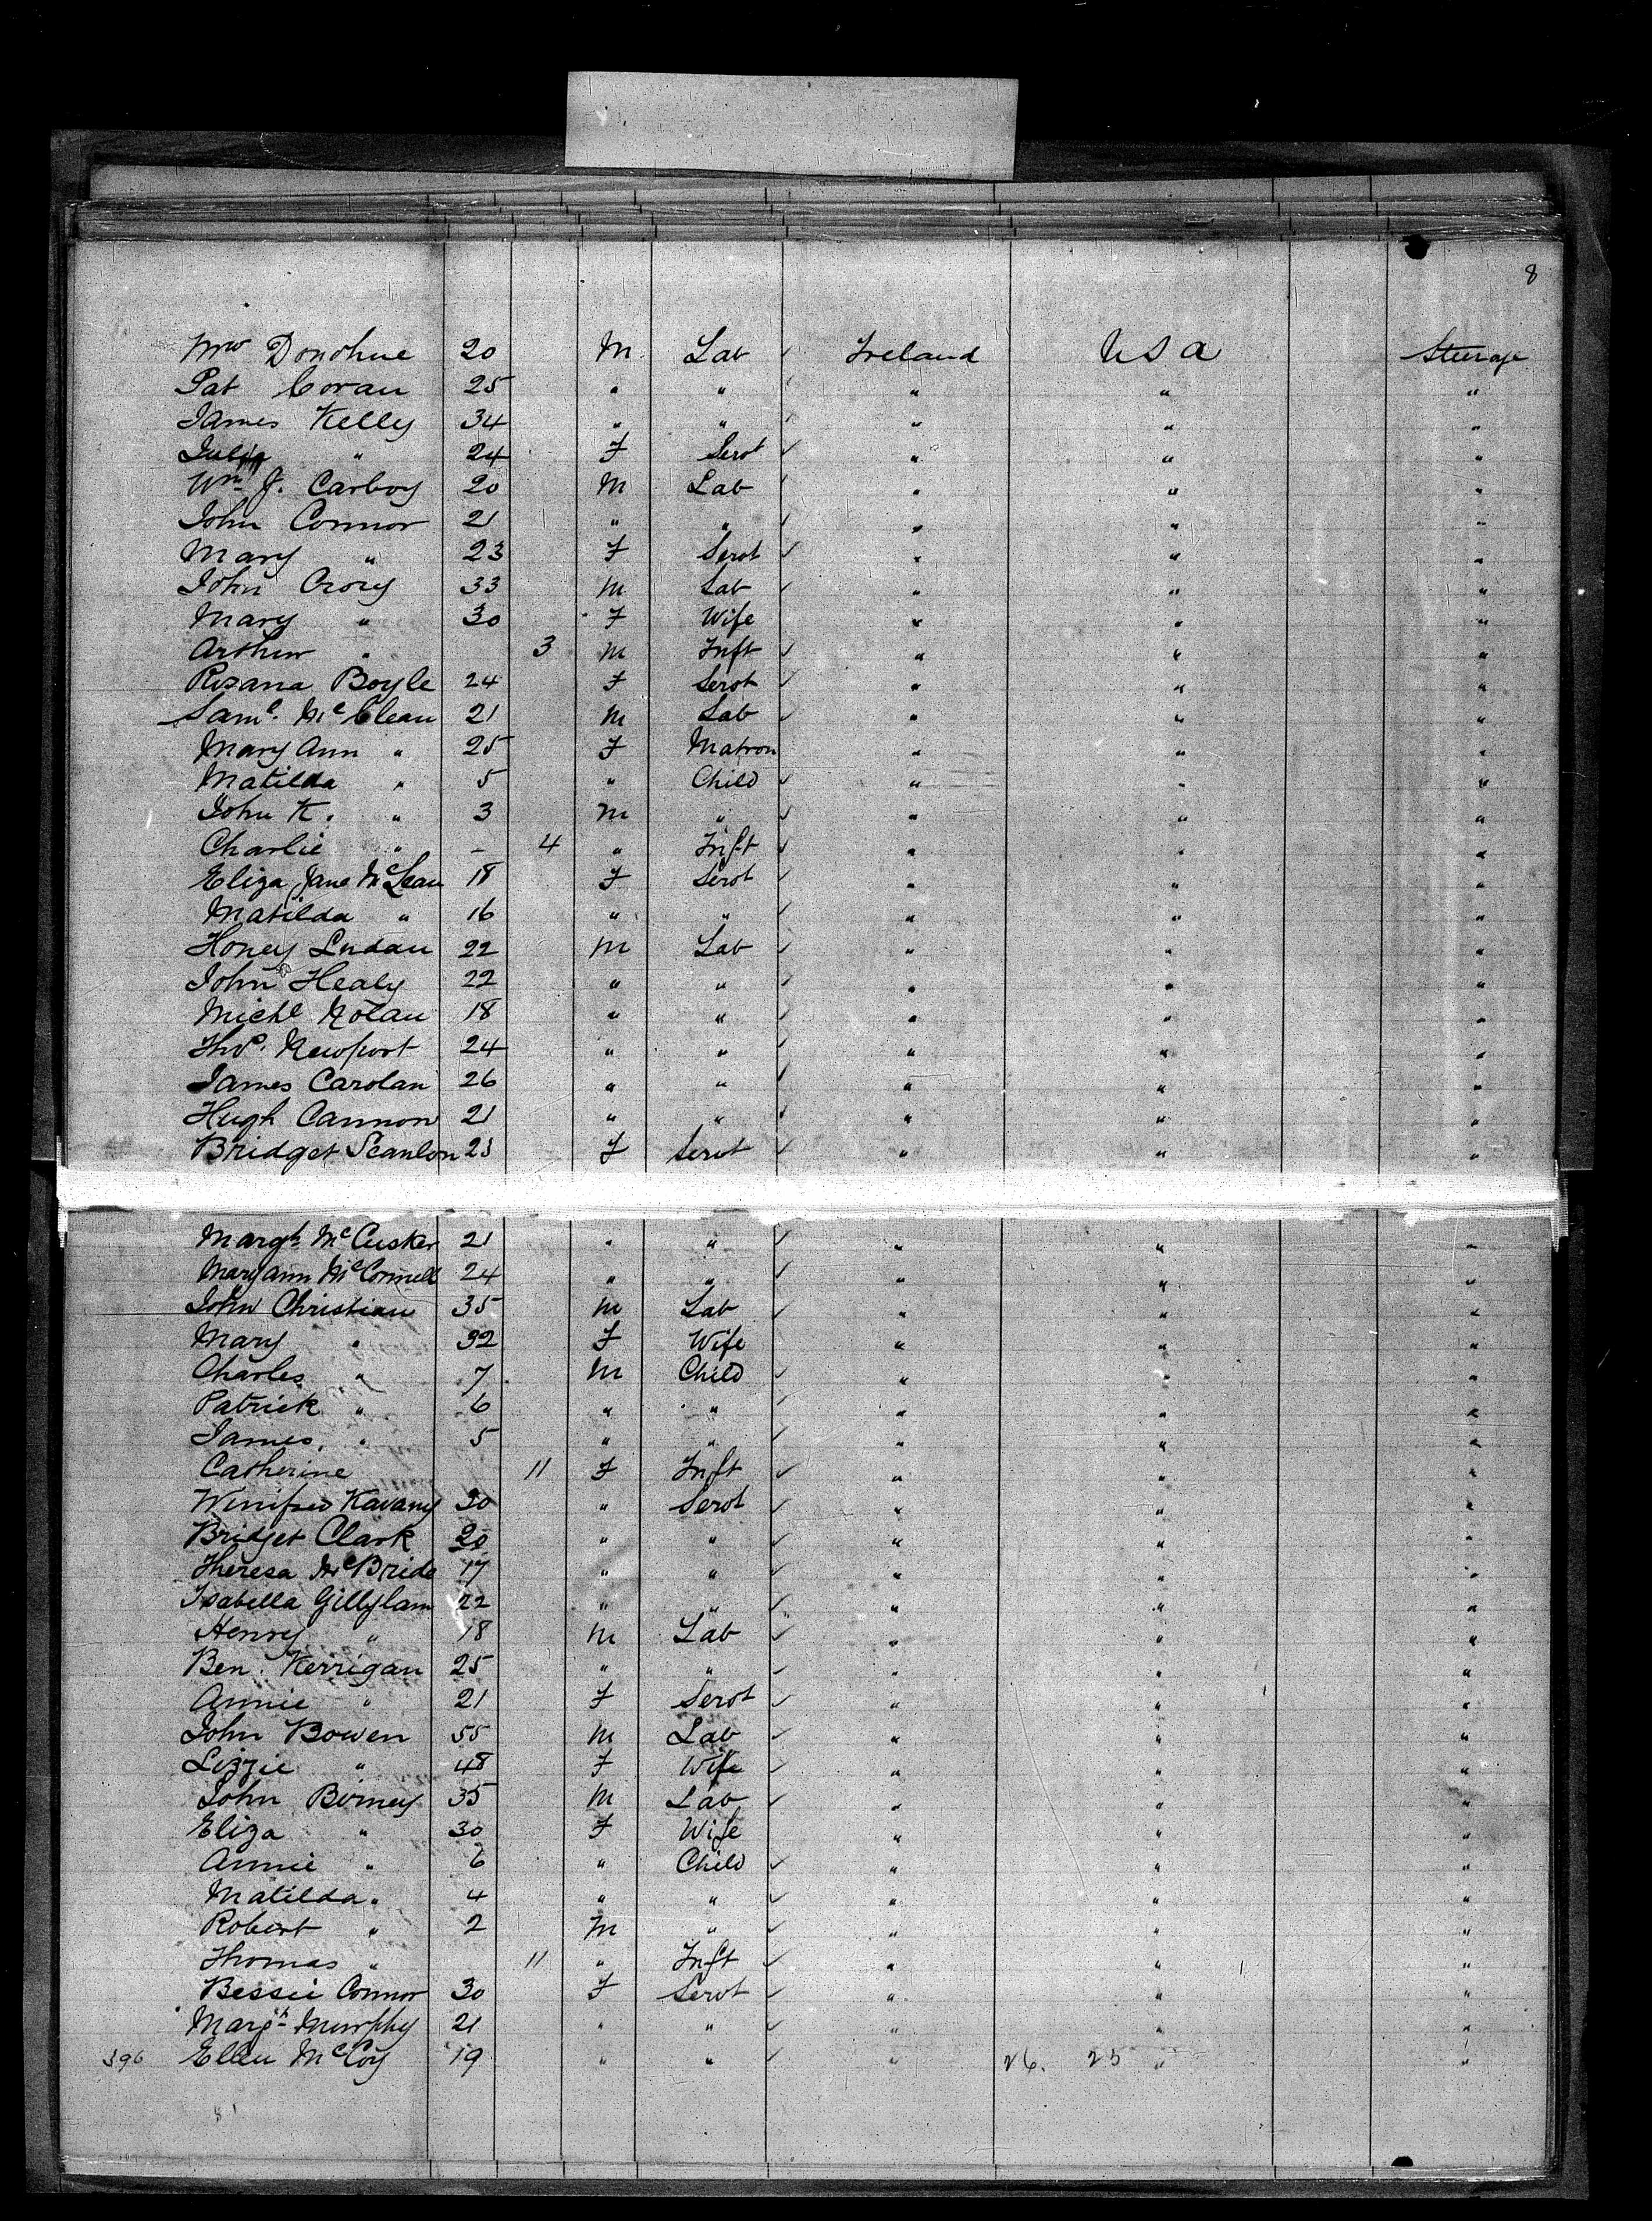 8
Donohue 20 M Lab Ireland USA Steerage
Pat 25 " " " " "
James Kelly 34 " " " " "
" 24 F Servt " " "
Wm J. Carboy 20 M Lab " " "
John Connor 21 " " " " "
Mary " 23 F Servt " " "
John Crory 33 M Lab " " "
Mary " 30 F Wife " " "
Arthur " 3 M Inft " " "
Rosana Boyle 24 F Servt " " "
Saml. McClean 21 M Lab " " "
Mary Ann " 25 F Matron " " "
Matilda " 5 " Child " " "
John K. " 3 M " " " "
Charlie " - 4 " Inft " " "
Eliza Jane McLean 18 F Servt " " "
Matilda " 16 " " " " "
22 M Lab " " "
John Healy 22 " " " " "
Michl Nolan 18 " " " " "
Thos. Newport 24 " " " " "
James Carolan 26 " " " " "
Hugh Cannon 21 " " " " "
Bridget Scanlon 23 F Servt " " "
Margh McCusker 21 " " " " "
Mary Ann McConnell 24 " " " " "
John Christian 35 M Lab " " "
Mary " 32 F Wife " " "
Charles " 7 M Child " " "
Patrick " 6 " " " " "
James " 5 " " " " "
Catherine 11 F Inft " " "
Winifred Kavany 30 " Servt " " "
Bridget Clark 20 " " " " "
Theresa McBride 17 " " " " "
Isabella Gillylam 22 " " " " "
Henry " 18 M Lab " " "
Ben. Kerrigan 25 " " " " "
Annie " 21 F Servt " " "
John Bowen 55 M Lab " " "
Lizzie " 48 F Wife " " "
John Birney 35 M Lab " " "
Eliza " 30 F Wife " " "
Annie " 6 " Child " " "
Matilda " 4 " " " " "
Robert " 2 M " " " "
Thomas " 11 " Inft " " "
Bessie Connor 30 F Servt " " "
Margh Murphy 21 " " " " "
396 Ellen McCoy 19 " " " 26. 25 " "